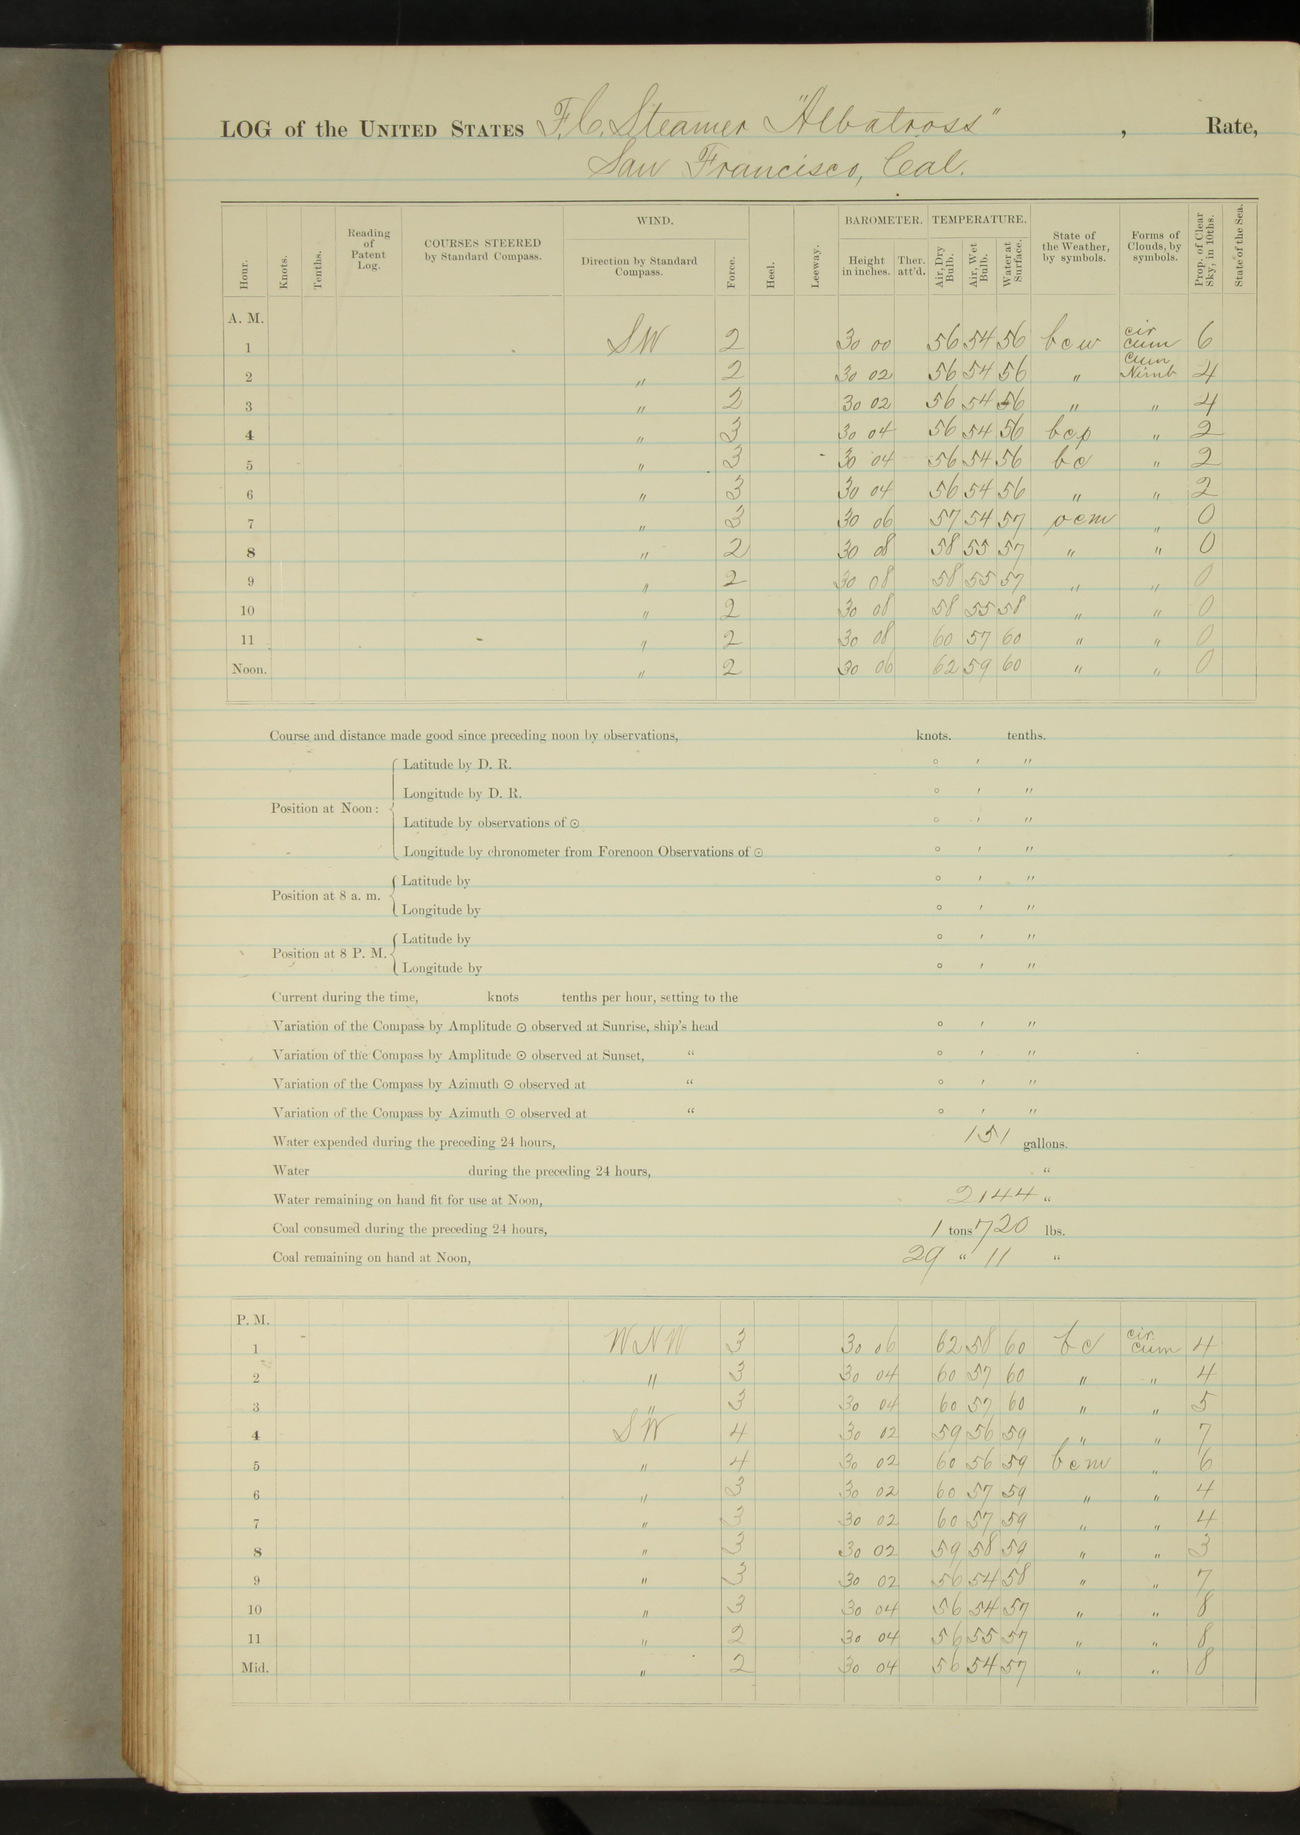 LOG of the UNITED STATES F.C. Steamer "Albatross" , Rate,
San Francisco, Cal.
Hour. Knots. Tenths. Reading of Patent Log. COURSES STEERED by Standard Compass. WIND. Direction by Standard Compass. Force. Heel. Leeway. BAROMETER. Height in inches. Ther. att'd. TEMPERATURE. Air, Dry Bulb. Air, Wet Bulb. Water at Surface. State of the Weather, by symbols. Forms of Clouds, by symbols. Prop. of Clear Sky, in 10ths. State of the Sea.
A. M.
1 SW 2 30 00 56 54 56 bcw cir cum 6
2 " 2 30 02 56 54 56 " Cum Nimb 4
3 " 2 30 02 56 54 56 " " 4
4 " 3 30 04 56 54 56 bcp " 2
5 " 3 30 04 56 54 56 bc " 2
6 " 3 30 04 56 54 56 " " 2
7 " 3 30 06 57 54 57 ocm " 0
8 " 2 30 08 58 55 57 " " 0
9 " 2 30 08 58 55 57 " " 0
10 " 2 30 08 58 55 58 " " 0
11 " 2 30 08 60 57 60 " " 0
Noon. " 2 30 06 62 59 60 " " 0
Course and distance made good since preceding noon by observations, knots. tenths.
Position at Noon:
Latitude by D. R. ° ' "
Longitude by D. R. ° ' "
Latitude by observations of ☉ ° ' "
Longitude by chronometer from Forenoon Observations of ☉ ° ' "
Position at 8 a. m.
Latitude by ° ' "
Longitude by ° ' "
Position at 8 P. M.
Latitude by ° ' "
Longitude by ° ' "
Current during the time, knots tenths per hour, setting to the
Variation of the Compass by Amplitude ☉ observed at Sunrise, ship's head ° ' "
Variation of the Compass by Amplitude ☉ observed at Sunset, " ° ' "
Variation of the Compass by Azimuth ☉ observed at " ° ' "
Variation of the Compass by Azimuth ☉ observed at " ° ' "
Water expended during the preceding 24 hours, 151 gallons.
Water during the preceding 24 hours, "
Water remaining on hand fit for use at Noon, 2144 "
Coal consumed during the preceding 24 hours, 1 tons 720 lbs.
Coal remaining on hand at Noon, 29 " 11 "
P. M.
1 WNW 3 30 06 62 58 60 bc cir. cum 4
2 " 3 30 04 60 57 60 " " 4
3 " 3 30 04 60 57 60 " " 5
4 SW 4 30 02 59 56 59 " " 7
5 " 4 30 02 60 56 59 bcm " 6
6 " 3 30 02 60 57 59 " " 4
7 " 3 30 02 60 57 59 " " 4
8 " 3 30 02 59 58 59 " " 3
9 " 3 30 02 56 54 58 " " 7
10 " 3 30 04 56 54 57 " " 8
11 " 2 30 04 56 55 57 " " 8
Mid. " 2 30 04 56 54 57 " " 8